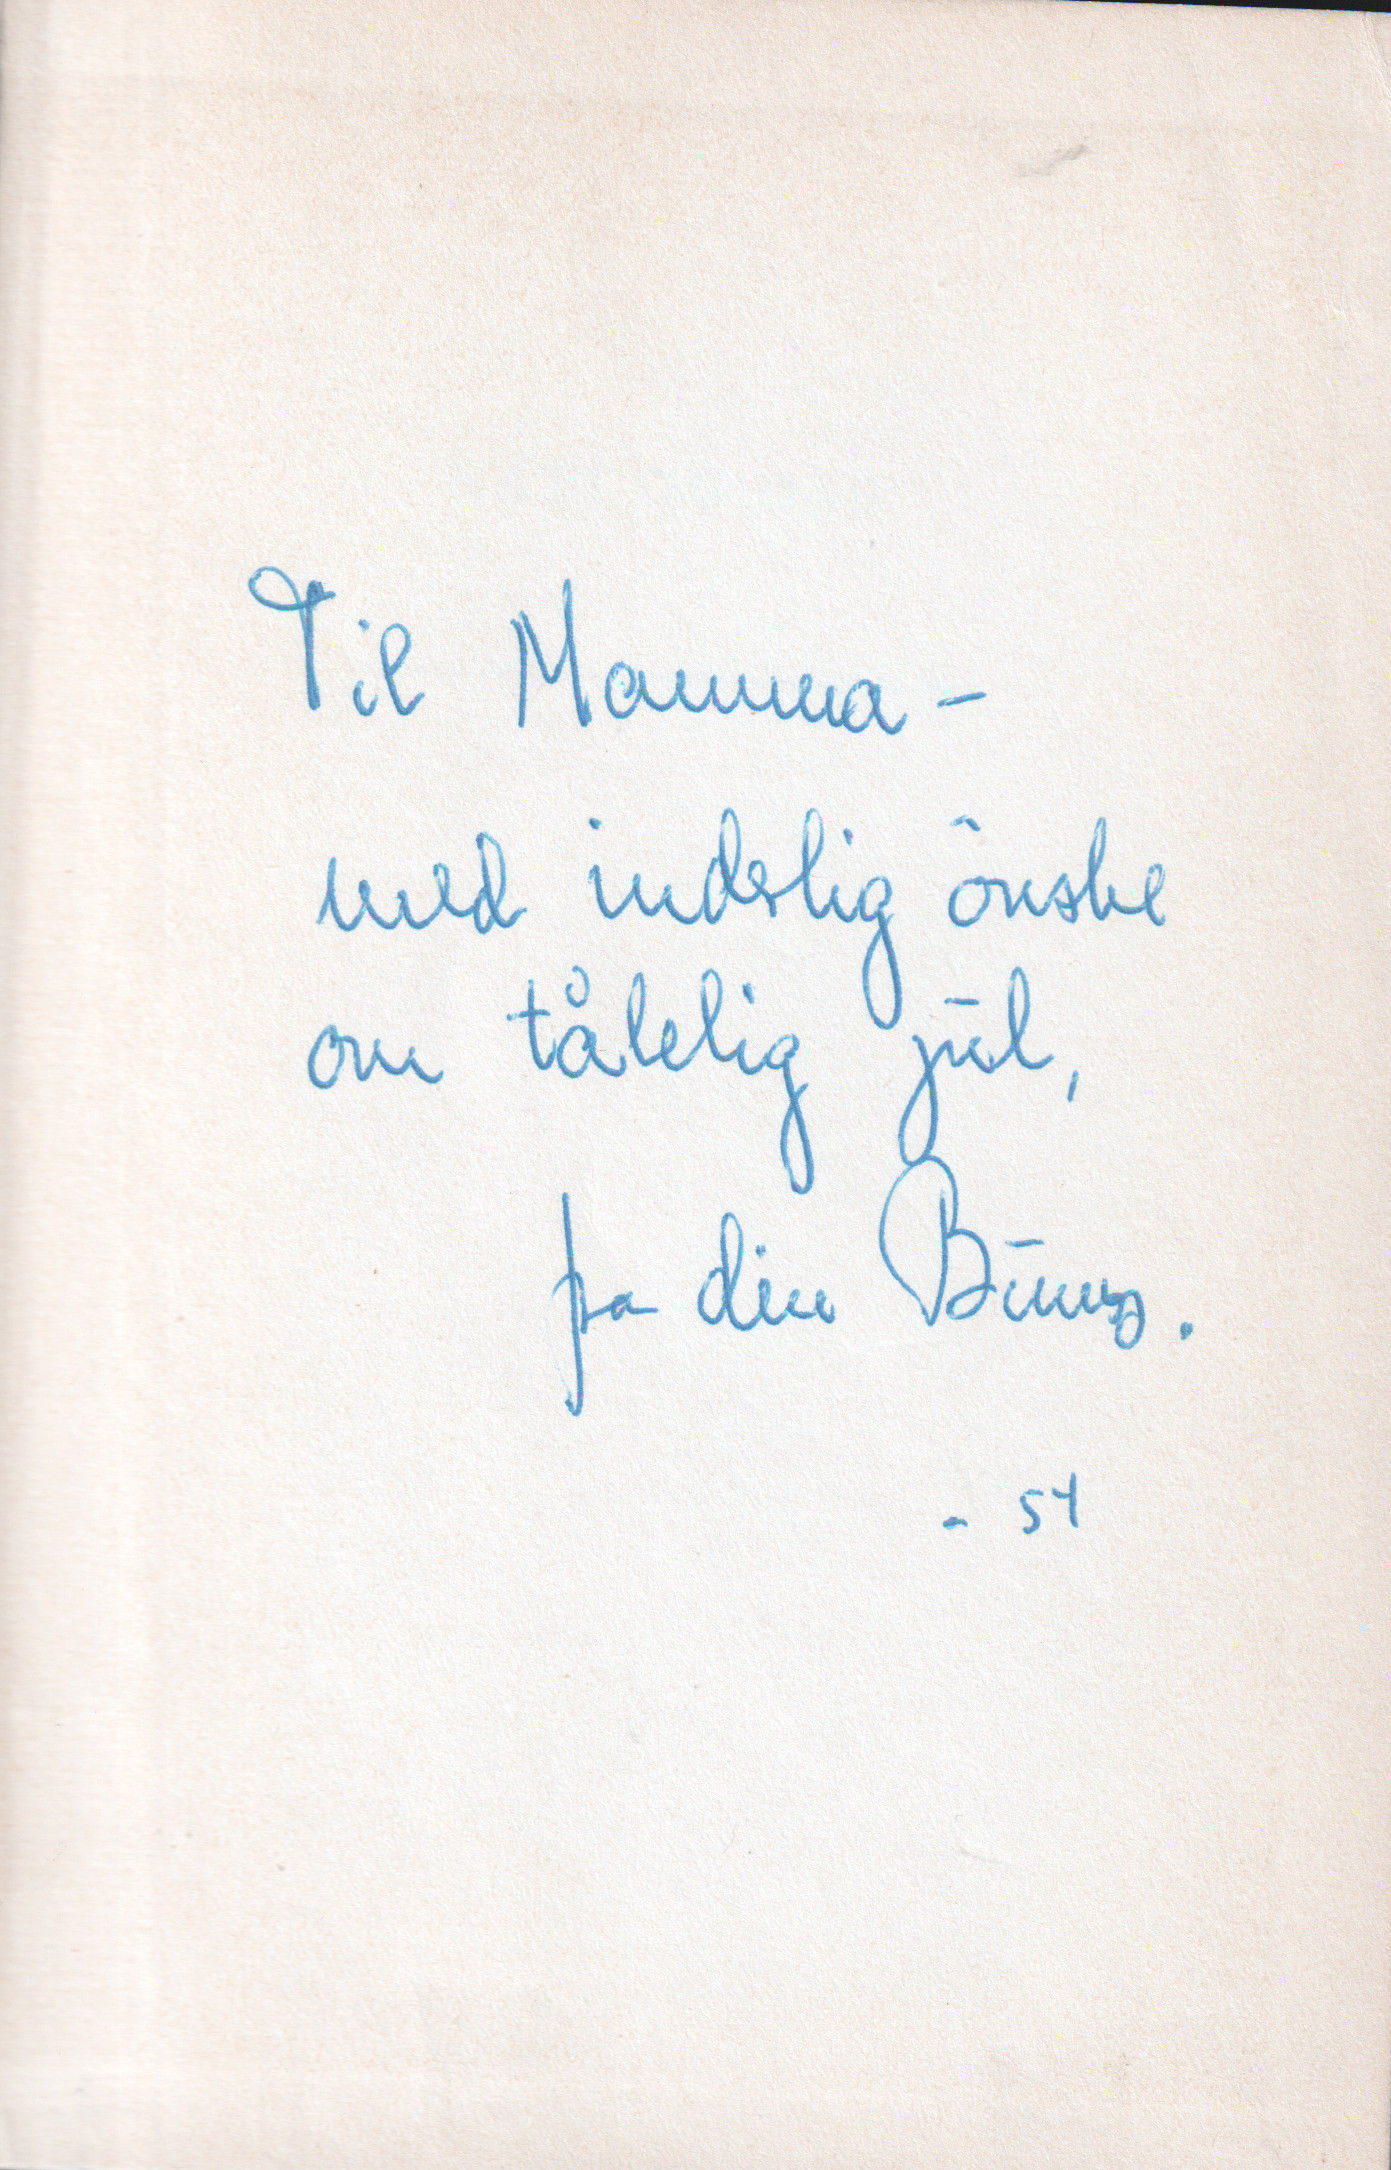 Til Mamma -
med inderlig önske
om tålelig jul,
fra din
- 54